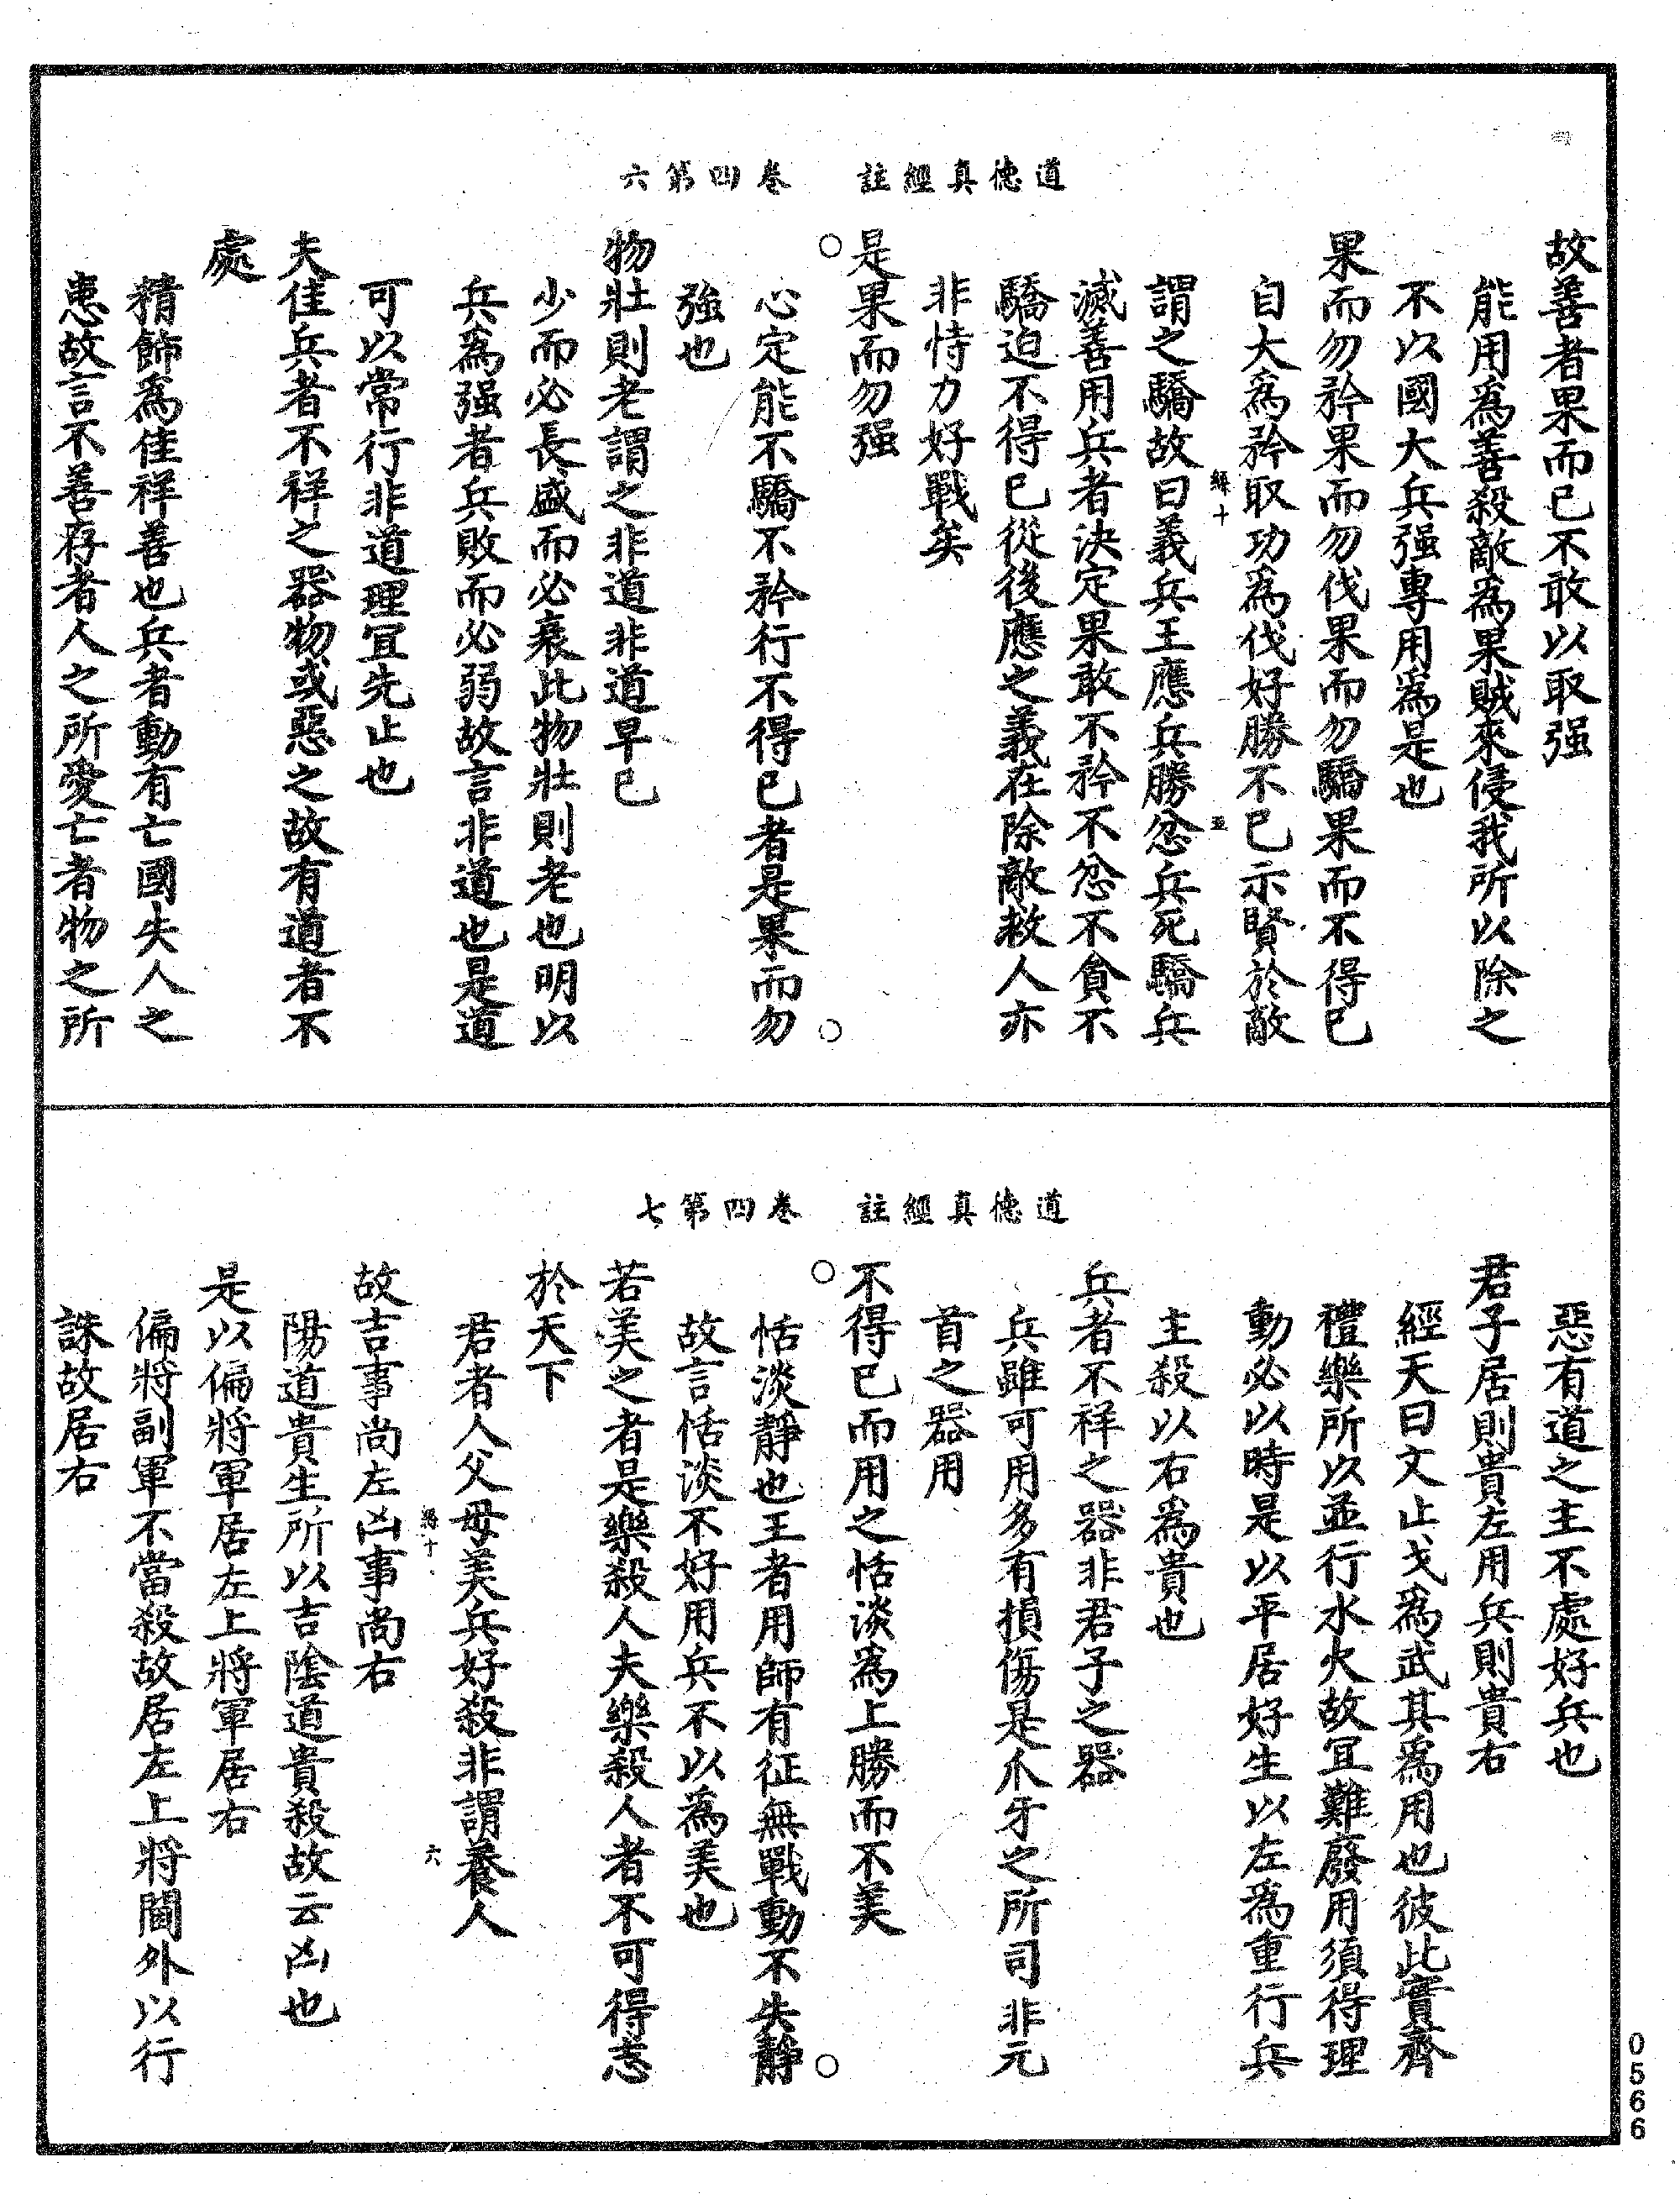 道德真經註　卷四第六
故善者果而已不敢以取强
能用爲善殺敵爲果賊來侵我所以除之
不以國大兵强專用爲是也
果而勿矜果而勿伐果而勿驕果而不得已
自大爲矜取功爲伐好勝不已示賢於敵
謂之驕故曰義兵王應兵勝忿兵死驕兵
滅善用兵者決定果敢不矜不忿不貪不
驕迫不得已從後應之義在除敵救人亦
非恃力好戰矣
是果而勿强
心定能不驕不矜行不得已者是果而勿
強也
物壯則老謂之非道非道早已
少而必長盛而必衰此物壯則老也明以
兵爲强者兵敗而必弱故言非道也是道
可以常行非道理宜先止也
夫佳兵者不祥之器物或惡之故有道者不
處
精飾爲佳祥善也兵者動有亡國失人之
患故言不善存者人之所愛亡者物之所
道德真經註　卷四第七
惡有道之主不處好兵也
君子居則貴左用兵則貴右
經天曰文止戈爲武其爲用也彼此實齊
禮樂所以並行水火故冝難廢用須得理
動必以時是以平居好生以左爲重行兵
主殺以右爲貴也
兵者不祥之器非君子之器
兵雖可用多有損傷是爪牙之所司非元
首之器用
不得已而用之恬淡爲上勝而不美
恬淡靜也王者用師有征無戰動不失靜
故言恬淡不好用兵不以爲美也
若美之者是樂殺人夫樂殺人者不可得志
於天下
君者人父母美兵好殺非謂養人
故吉事尚左凶事尚右
陽道貴生所以吉陰道貴殺故云凶也
是以偏將軍居左上將軍居右
偏將副軍不當殺故居左上將閫外以行
誅故居右
0566